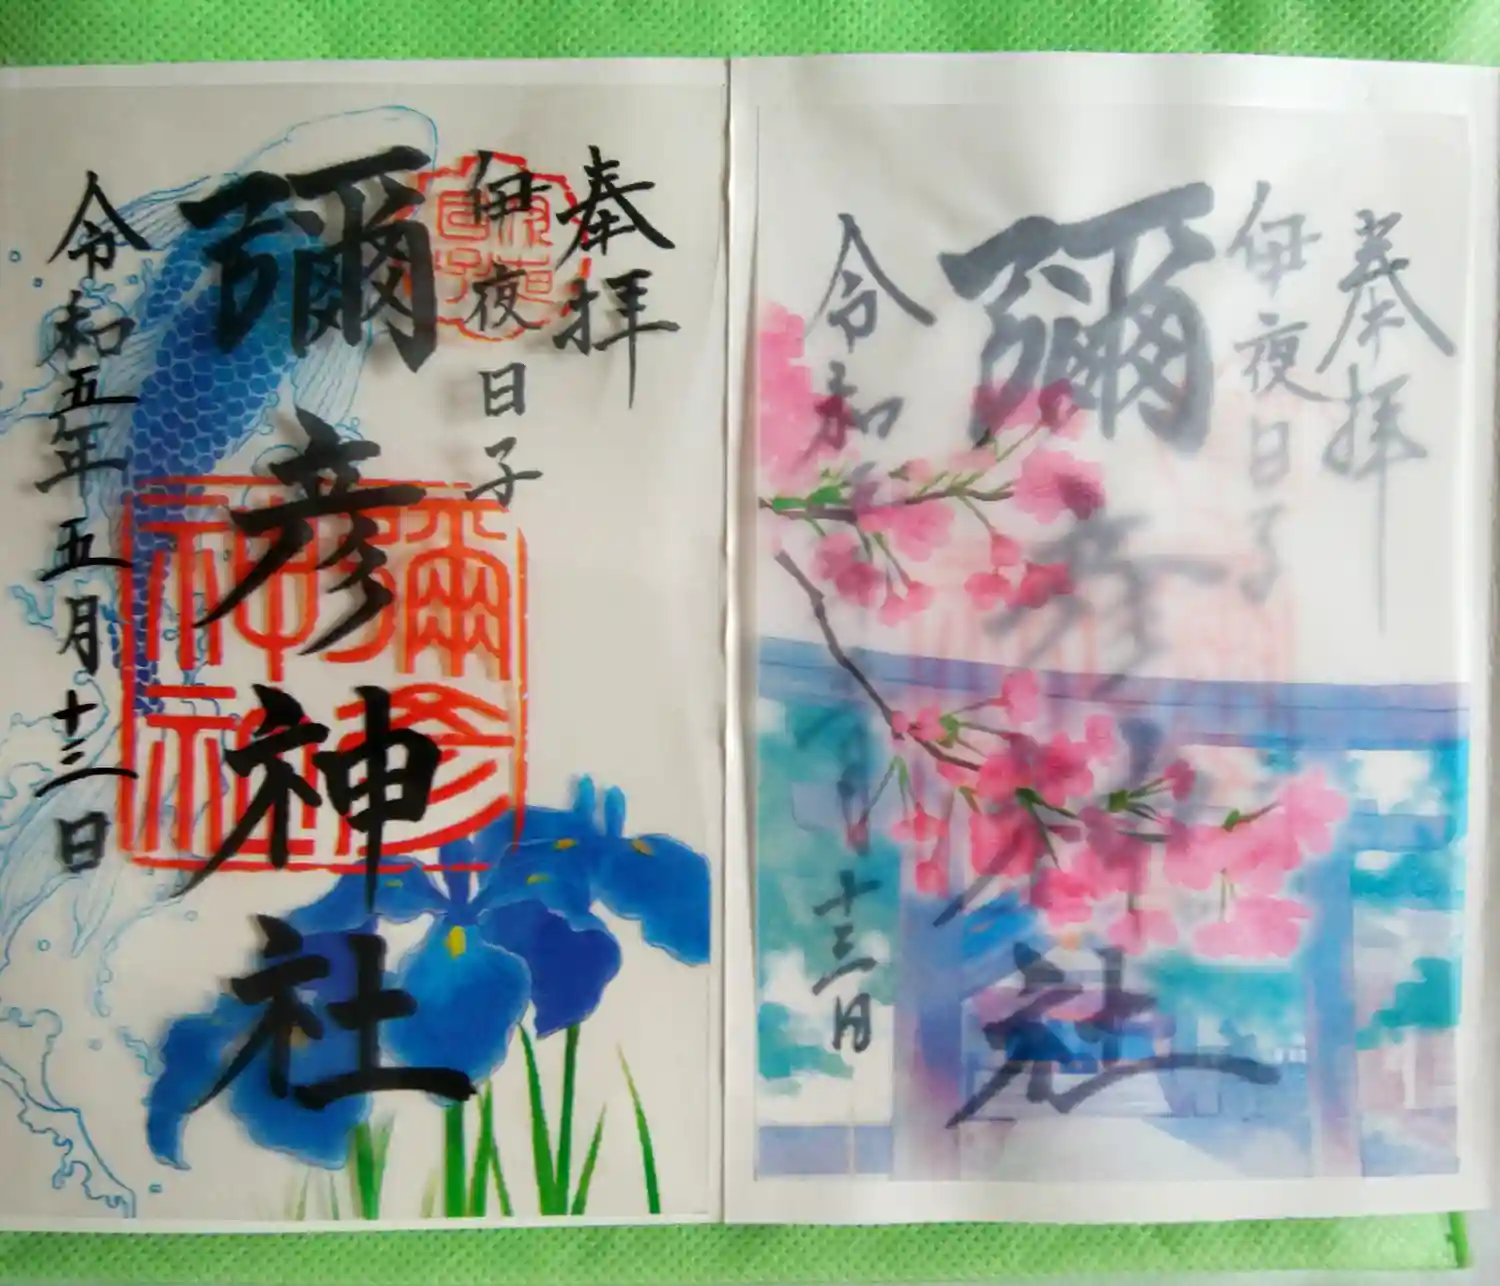 奉拝
伊夜日子
彌彦神社
令和五年五月十三日
奉拝
伊夜日子
彌彦神社
令和
月十三日